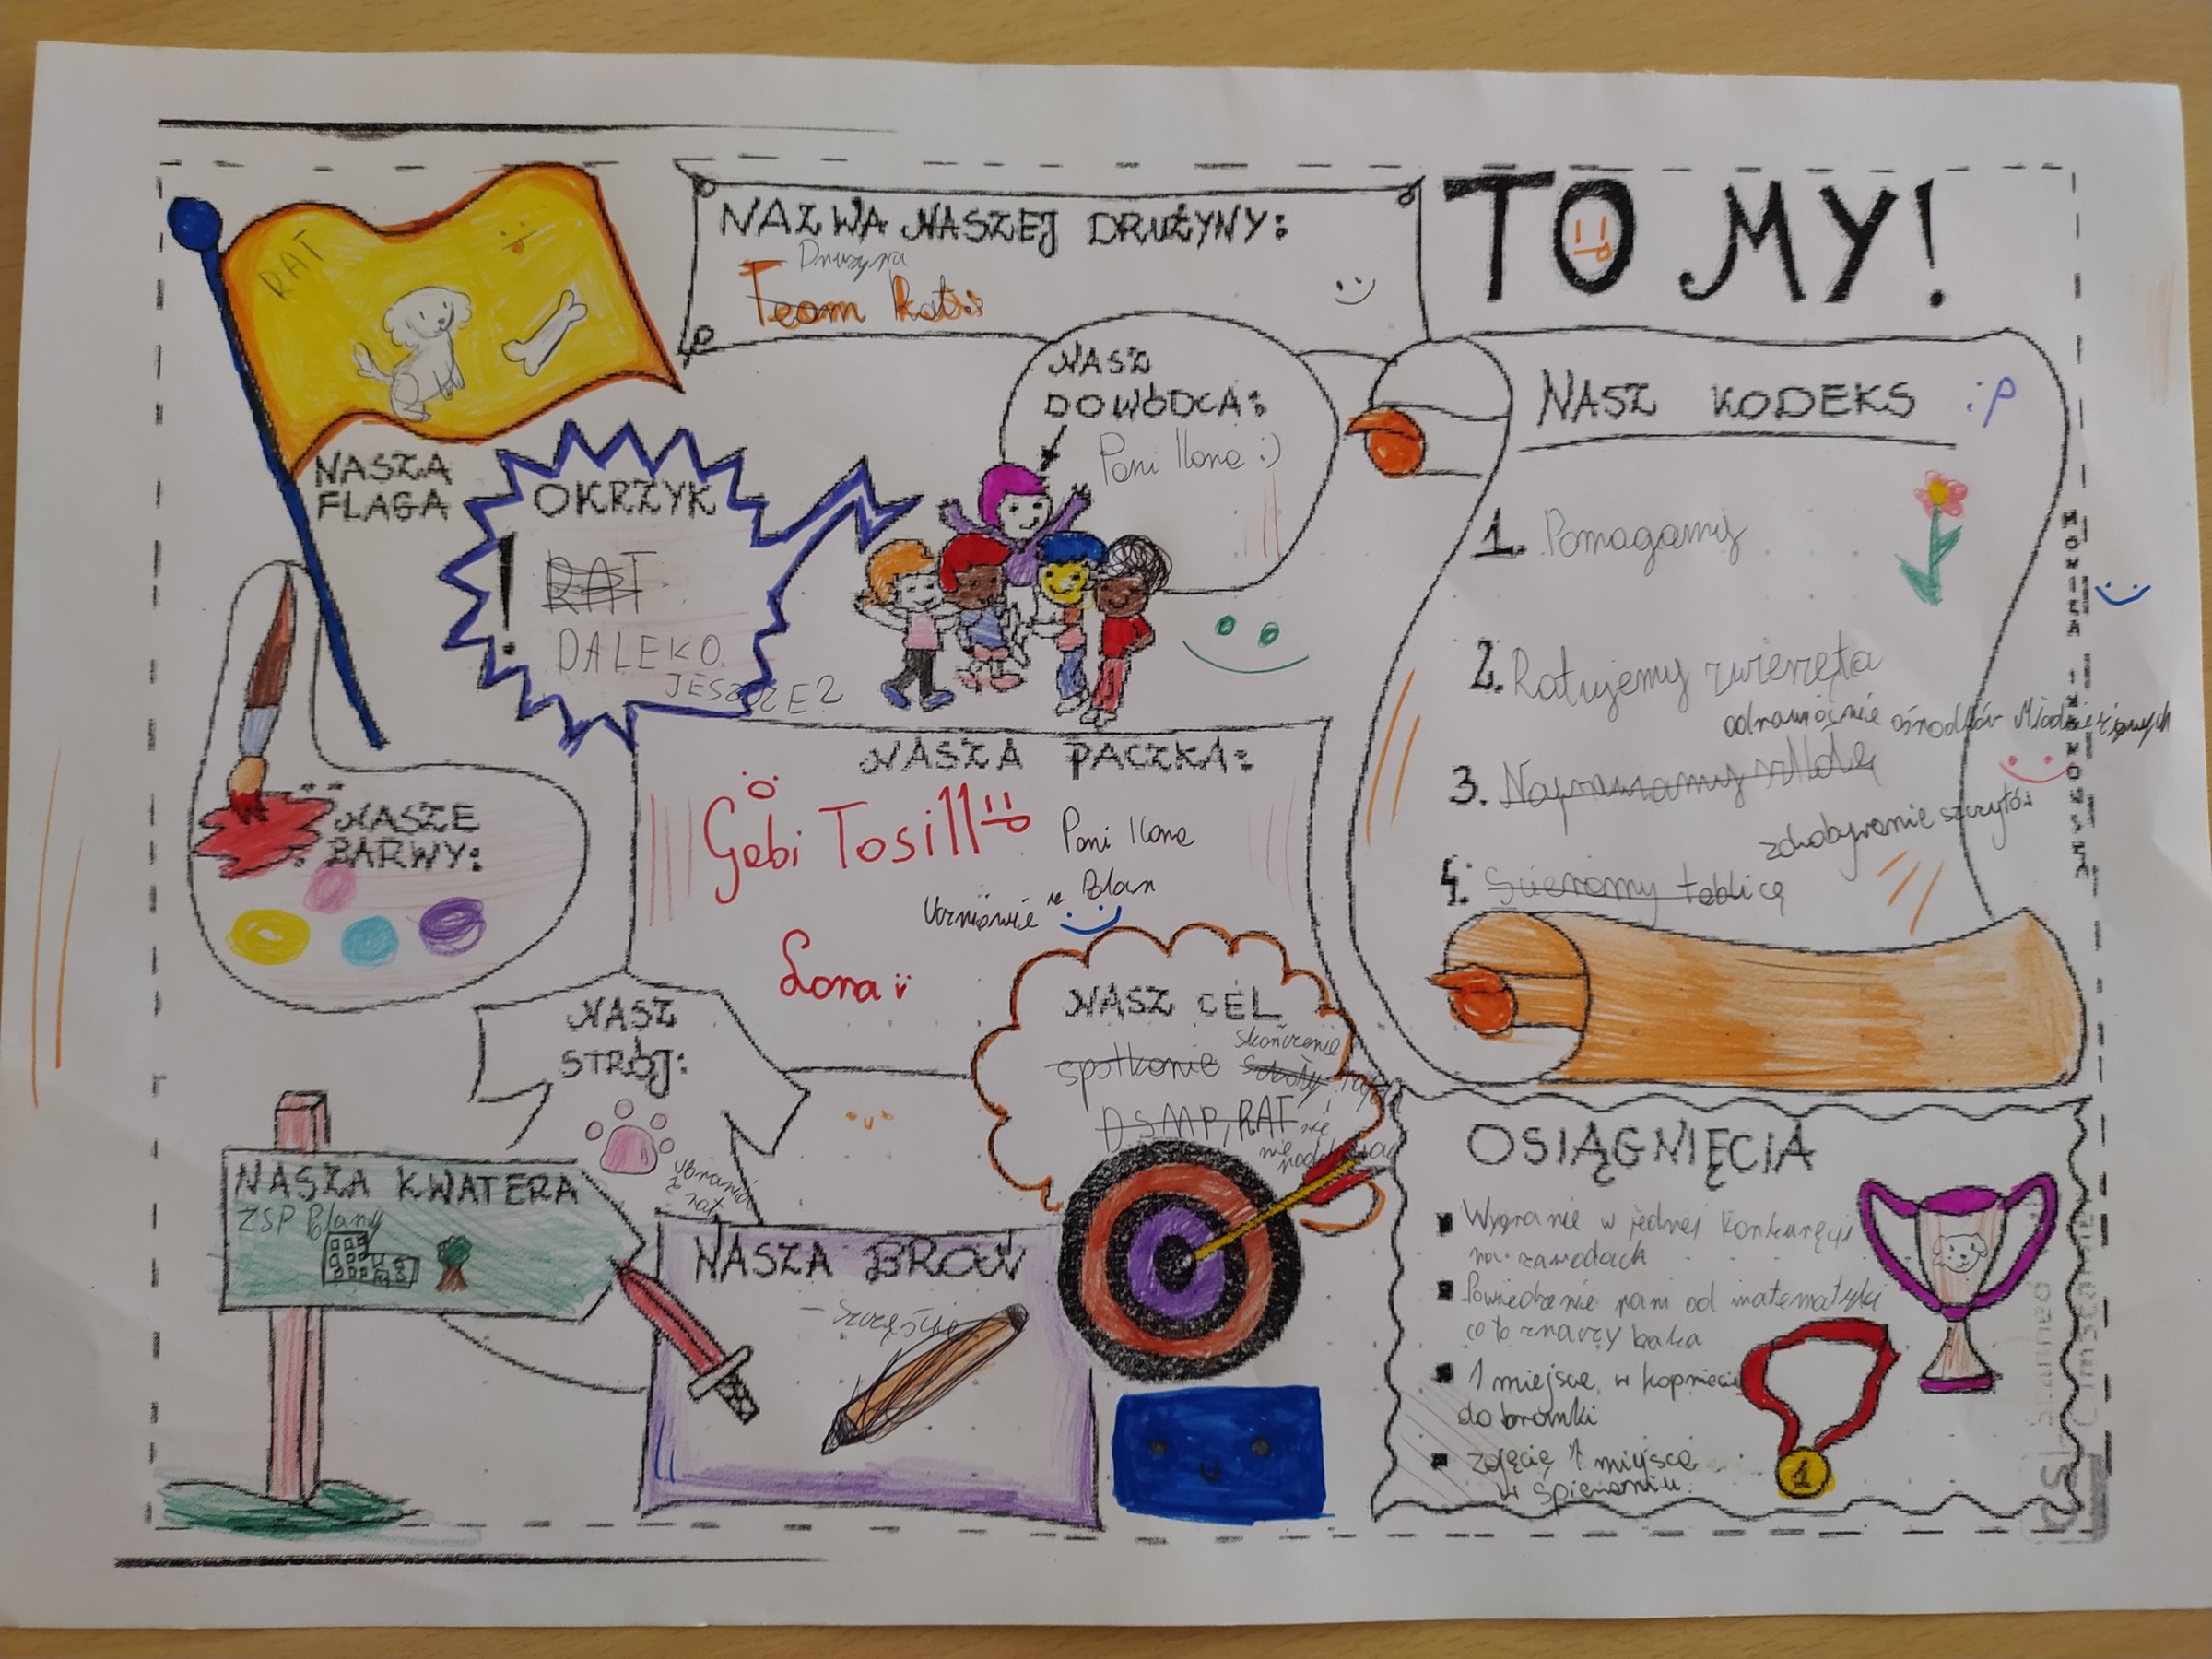 TO MY!
NAZWA NASZEJ DRUŻYNY:
Drużyna
Team Rat
RAT
NASZA
FLAGA
NASZ
DOWÓDCA:
Pani Ilona :)
OKRZYK
!
RAT
DALEKO
JESZCZE?
NASZ KODEKS :P
1. Pomagamy
2. Ratujemy zwierzęta
ośrodków
3. Naprawiamy
zdobywanie szczytów
4. Ścieramy tablicę
NASZE
BARWY:
NASZA PACZKA:
Gabi Tosill
Pani Ilona
Uczniowie w Blan
Lona
NASZ
STRÓJ:
ubrania
z
rat
NASZ CEL
skończenie
spotkanie szkoły
DSMP, RAT
się
nie
NASZA KWATERA
ZSP Blany
NASZA BROŃ
OSIĄGNIĘCIA
Wygranie w jednej konkurecji
na zawodach
Powiedzenie pani od matematyki
co to znaczy baka
1 miejsce w kopnięciu
do bramki
zdjęcie 1 miejsca
w śpiewaniu